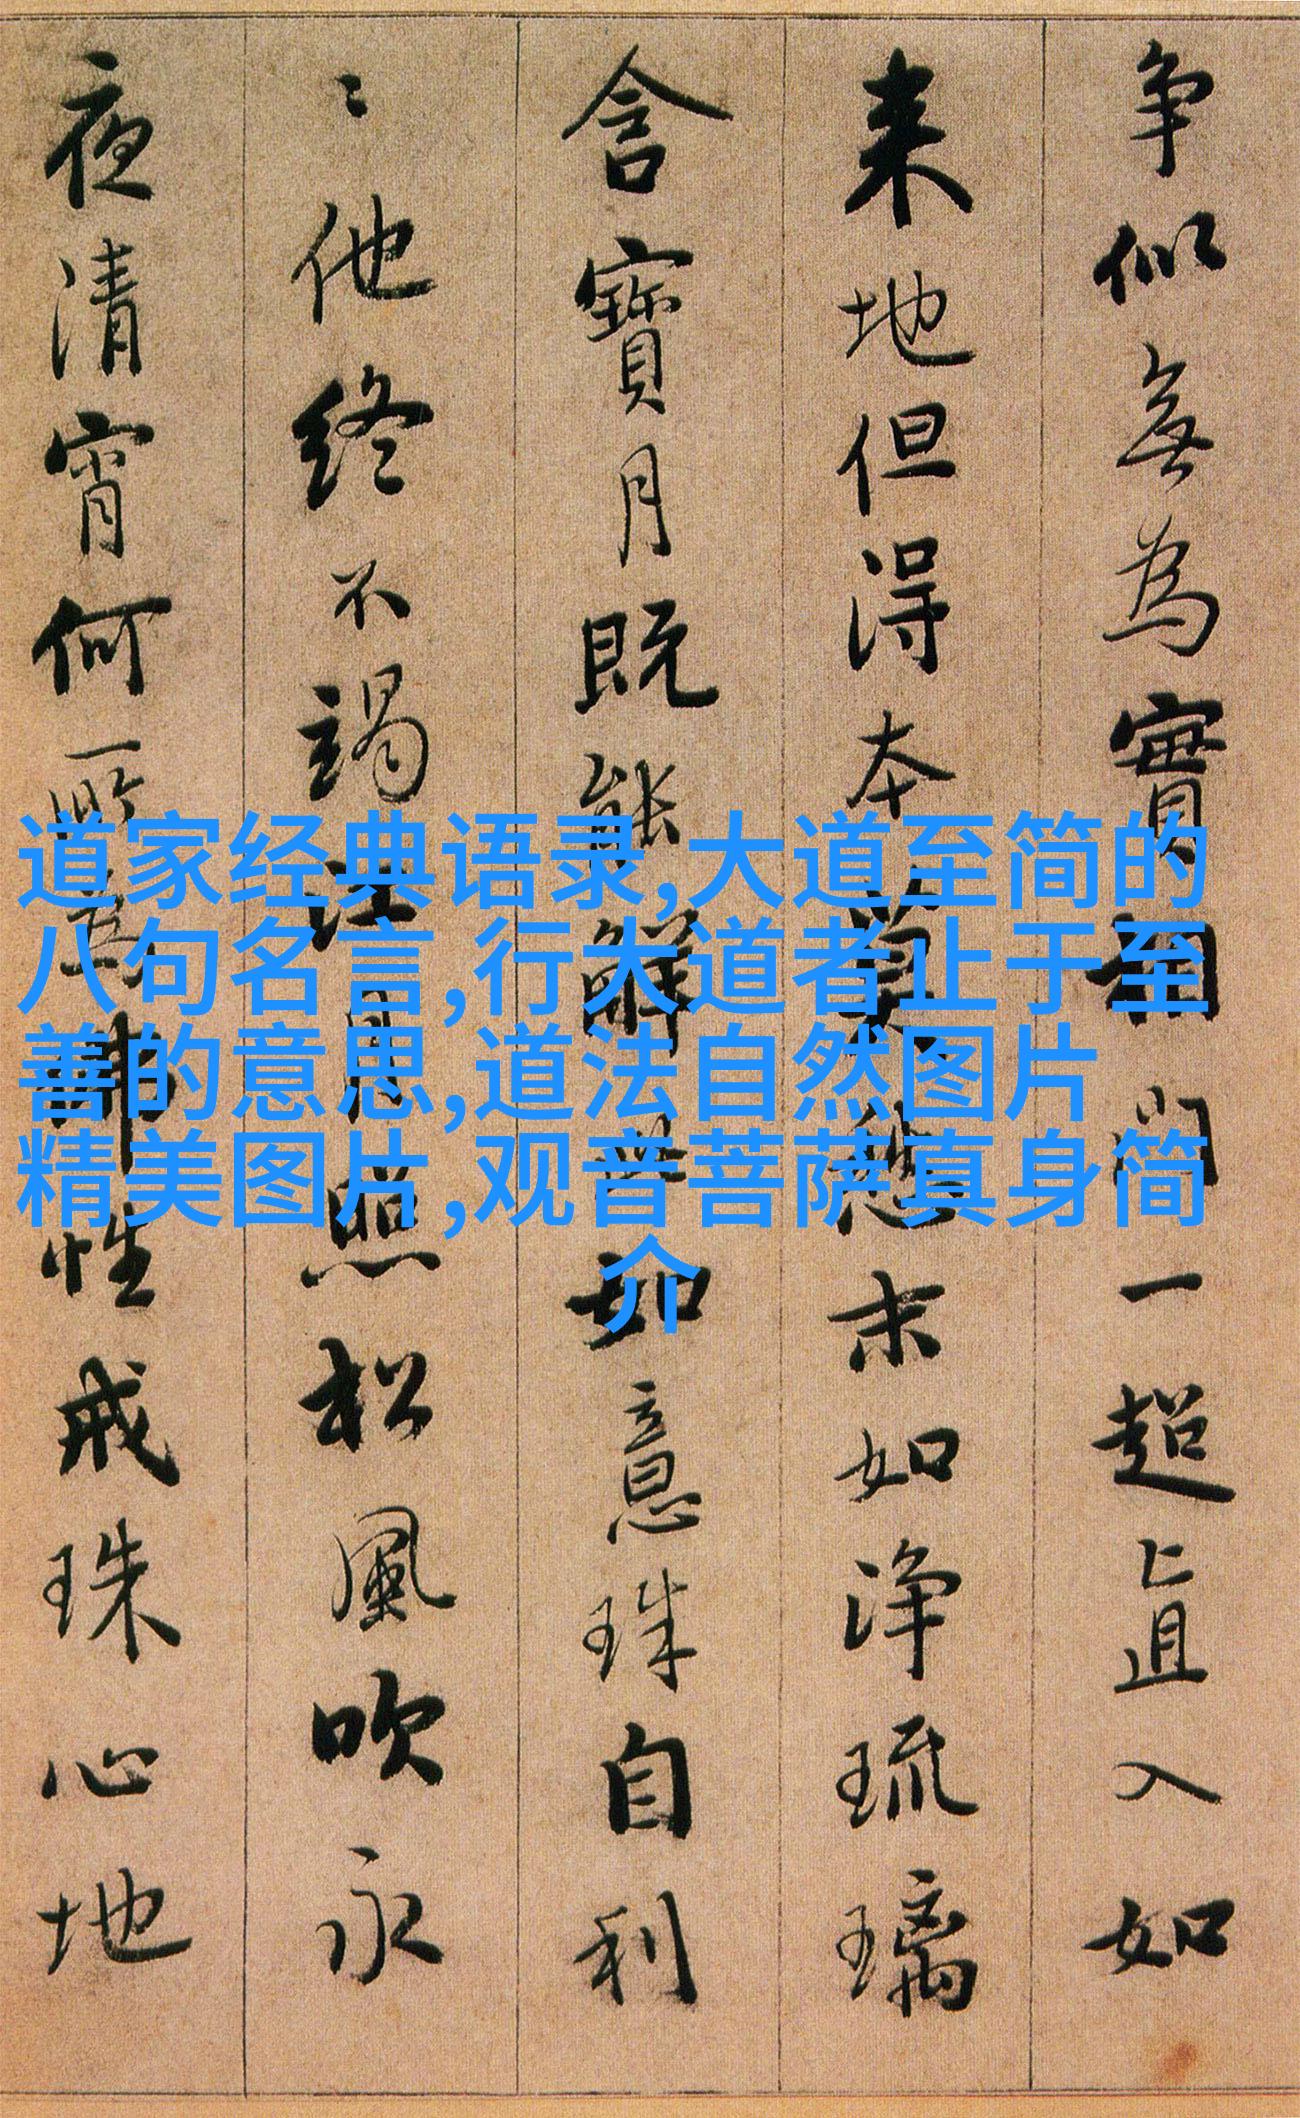 争似無為實相門一超直入如
来地但得本莫愁末如淨琉璃
含寶月既能解此如意珠自利
〻他終不竭江月照松風吹永
夜清宵何所為佛性戒珠心地
道家经典语录,大道至简的
八句名言,行大道者止于至
善的意思,道法自然图片
精美图片,观音菩萨真身简
介